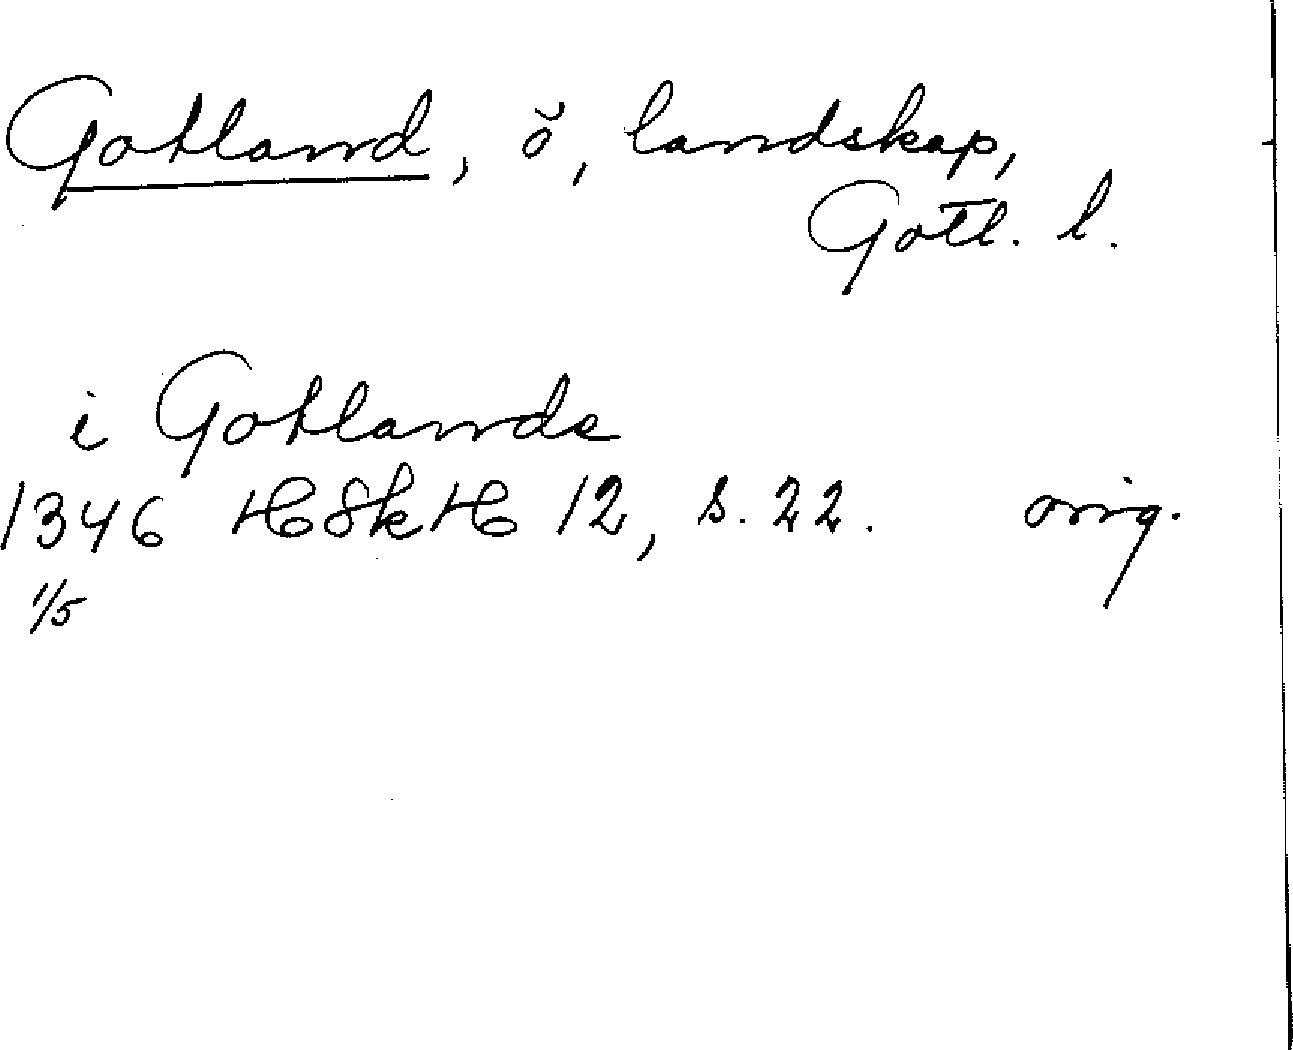 Gotland, ö, landskap,
Gotl. l.
i Gotlande
1346 HSkH 12, s. 22. orig.
1/5